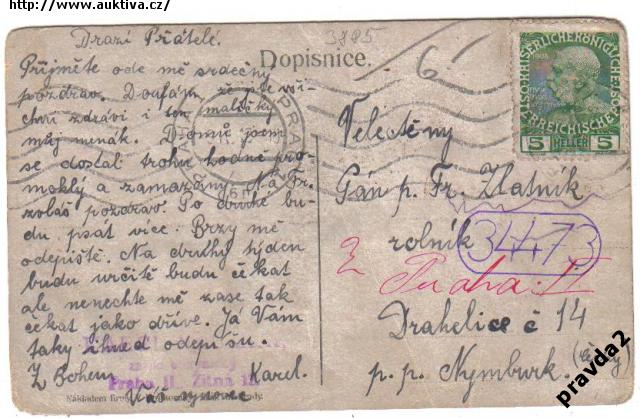 http://www.auktiva.cz/
Drazí Přátelé.
3885
Dopisnice.
Přijměte ode mě srdečný
pozdrav. Doufám že jste vši-
chni zdrávi i ten maličký
můj  Domů jsem
se dostal trohu hodně pro-
moklý a zamazaný. Na Fr.
zvláš pozdrav. Po druhé bu-
du psát více. Brzy mě
odepište. Na druhý týden
budu určitě budu čekat
ale nenechte mě zase tak
čekat jako dříve. Já Vám
taky ihned odepíšu.
Z Bohem Karel.
Váš synovec
Praha II. Žitná
KAISERLICHE KÖNIGLICHE
ÖSTERREICHISCHE
5 HELLER 5
PRAHA
Velectěný
Pán p. Fr. Zlatník
rolník
34473
z Praha II
Drahelice č 14
p. p. Nymburk. (Čechy)
pravda2